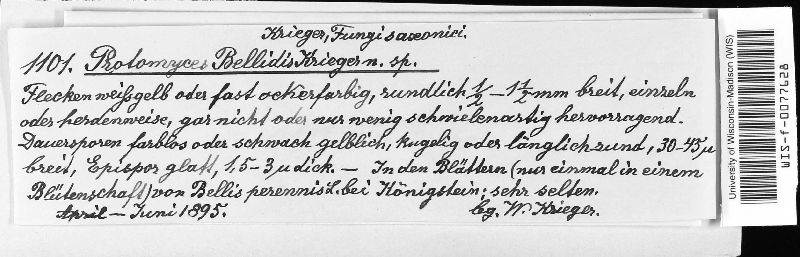 Krieger, Fungi saxonici.
1101. Protomyces Bellidis Krieger n. sp.
Flecken weißgelb oder fast ockerfarbig, rundlich ½ – 1½ mm breit, einzeln
oder herdenweise, gar nicht oder nur wenig schwielenartig hervorragend.
Dauersporen farblos oder schwach gelblich, kugelig oder länglichrund, 30–45 µ
breit, Epispor glatt, 1,5–3 µ dick. — In den Blättern (nur einmal in einem
Blütenschaft) von Bellis perennis L. bei Königstein; sehr selten.
April – Juni 1895.
lg. W. Krieger.
University of Wisconsin-Madison (WIS)
WIS-f-0077628